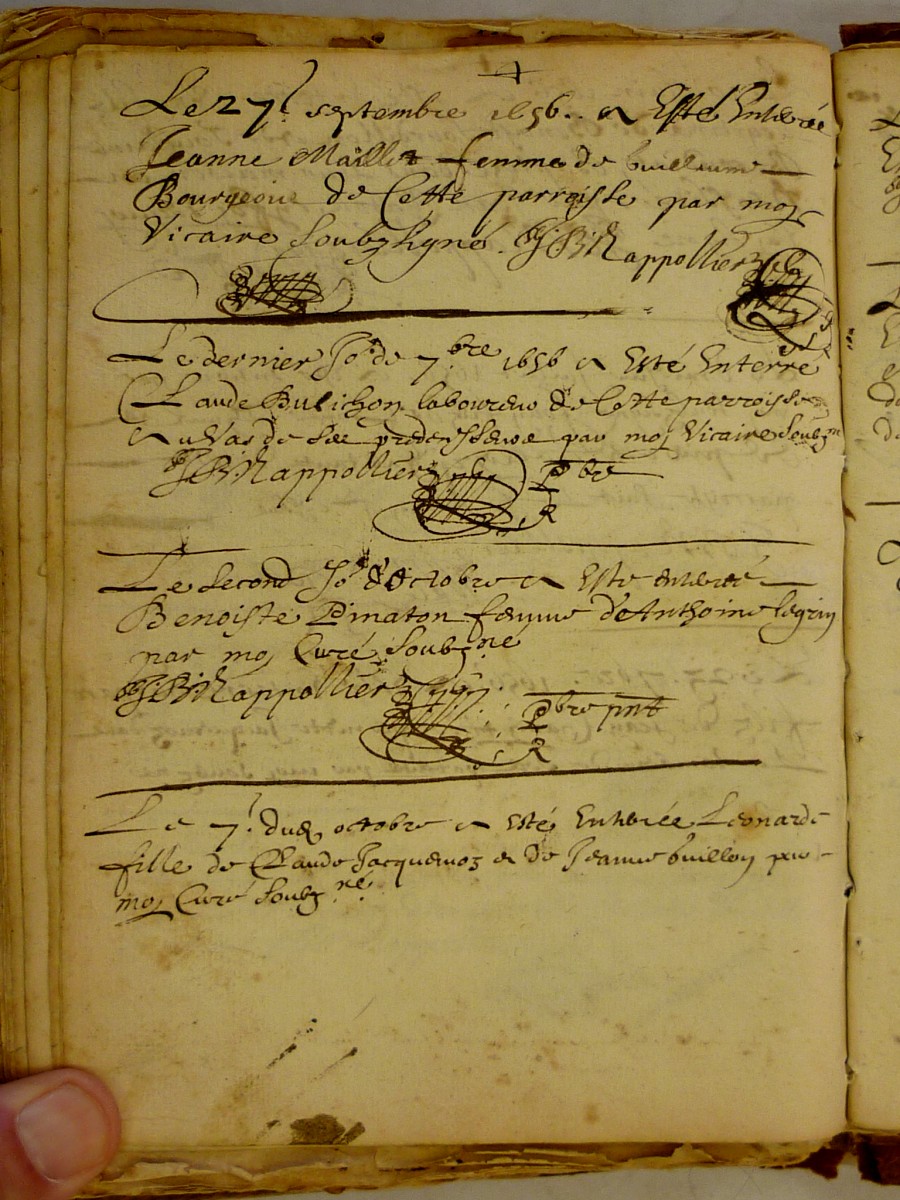 Le 27e septembre 1656. a Esté Enterée
Jeanne Maillet femme de Guillaume
Bourgeois de Cette parroisse par moy
Vicaire soubzsigné. JBChappollier
Le dernier Jor de 7bre 1656 a Esté Enterré
Claude Bulichon laboureur de Cette parroisse
au Vas de ses predecesseurs par moy Vicaire soubzné
JBChappollier pbre
Le second Jor d'octobre a Esté enterée
Benoiste Pinaton femme d'Anthoine
par moy Curé soubzné
JBChappollier pbre pnt
Le 7e dud octobre a Esté Enterée Leonarde
fille de Claude Jacquemoz et de Jeanne Guillon par
moy Curé soubzné